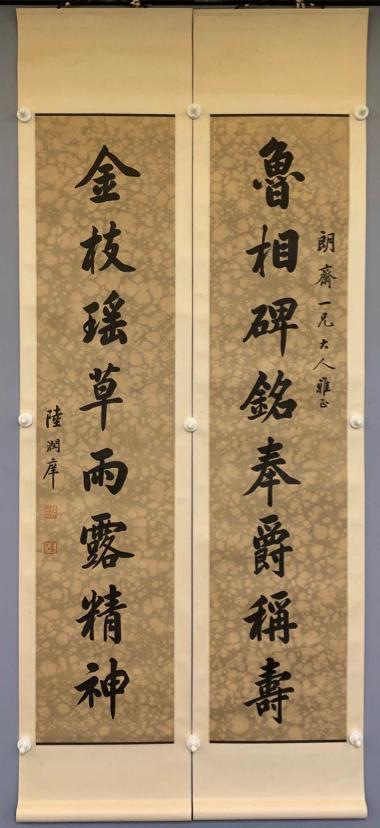 朗齋一兄大人雅正
魯相碑銘奉爵稱壽
金枝瑶草雨露精神
陸潤庠